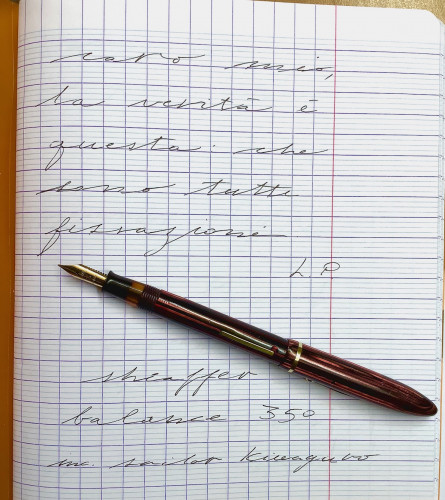 caro mio,
la verità è
questa: che
sono tutte
fissazioni
L.P
sheaffer
balance 350
in. sailor Kiwaguro